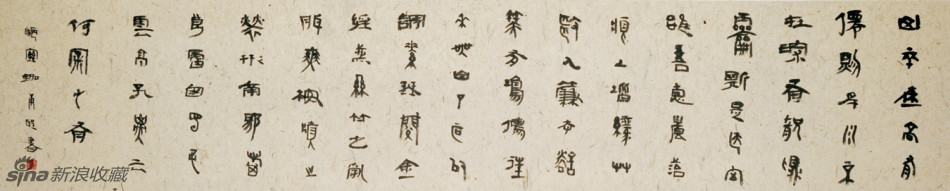 山不在高有
僊則名水不
在深有龍則
靈斯是陋室
唯吾惪馨苔
痕上階綠艸
色入簾青談
笑有鴻儒往
來無白丁可以
調素琴閱金
經無絲竹之亂
耳無案牘之
勞形南陽諸
葛廬西蜀子
雲亭孔子云
何陋之有
sina新浪收藏